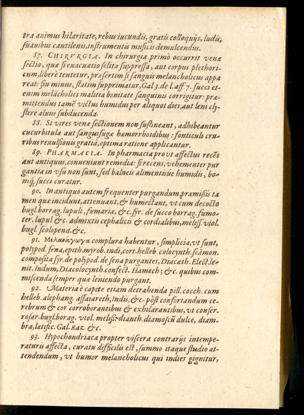 tra animus hilaritate, rebus iucundis, gratis colloquijs, ludis,
suauibus cantilenis, instrumentis musicis demulcendus.
87. CHIRVRGIA. In chirurgia primò occurrit venæ
sectio, quæ si euacuatio solita suppressa, aut corpus plethori-
cum, liberè tentetur, præsertim si sanguis melancholicus appa
reat: sin minus, statim supprimatur, Gal 3. de l. aff. 7. succi et-
enim melancholici malitia bonitate sanguinis corrigitur: præ-
mittendus tamē victus humidus per aliquot dies, aut leni cly-
stere aluus subducenda.
88. Si vires venæ sectionem non sustineant, adhibeantur
cucurbitulæ aut sanguisugæ hæmorrhoidibus: fonticuli cru-
ribus reuulsionis gratia, optima ratione applicantur.
89. PHARMACIA. In pharmacia pro vt affectus recēs
aut antiquus, conueniunt remedia: si recens, vehementer pur
gantia in vsu non sunt, sed balneis alimentisue humidis, bo-
nisq, succi curatur.
90. In antiquo autem frequenter purgandum præmißis ta
men quæ incidunt, attenuant, & humectant, vt cum decocto
bugl. borrag. lupuli, fumariæ, &c. syr. de succo borrag. fumo-
ter. lupul. &c. admixtis cephalicis & cordialibus, meliss. viol.
bugl. scolopend. &c.
91. Μελανάγωγα complura habentur, simplicia, vt sunt,
polypod. sena, epith. myrob. indi, cort. helleb. colocynth. scāmon.
composita syr. de polypod. de sena purgantes, Diacath. Elect. le-
nit. Indum, Diacolocynth. confect. Hamech; &c. quibus com-
miscenda semper quæ leniendo purgant.
92. Materiæ è capite etiam detrahenda pill. cocch. cum
helleb. alephang. assaiareth, Indæ, &c. pòst confortandum ce-
rebrum & cor corroborantibus & exhilarantibus, vt conser.
rosar. bugl. borag. viol. meliss. dianth. diamoscū dulce, diam-
bra, lætific. Gal. RAZ. &c.
93. Hypochondriaca propter viscera contrarijs intempe-
raturis affecta, curatu difficilis est, summo itaque studio at-
tendendum, vt humor melancholicus qui indies gignitur,